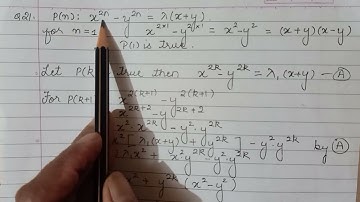 Q21: P(n): x²ⁿ - y²ⁿ = λ(x+y)
for n=1 x²ˣ¹ - y²ˣ¹ = x² - y² = (x+y)(x-y)
P(1) is true.
Let P(k) true then x²ᵏ - y²ᵏ = λ₁(x+y) — Ⓐ
For P(k+ x²⁽ᵏ⁺¹⁾ - y²⁽ᵏ⁺¹⁾
x²ᵏ⁺² - y²ᵏ⁺²
x²·x²ᵏ - y²·y²ᵏ
x²[λ₁(x+y) + y²ᵏ] - y²·y²ᵏ by Ⓐ
λ₁x² + x²y²ᵏ - y²·y²ᵏ
x² + y²ᵏ (x² - y²)